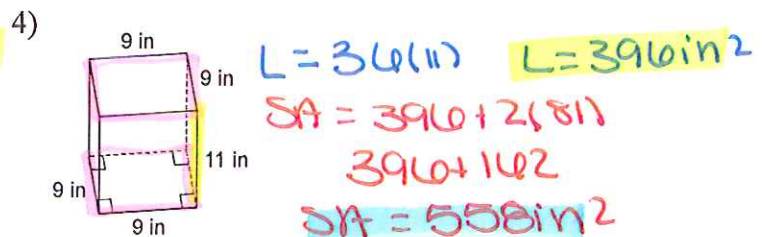 4)
9 in
9 in
11 in
9 in
9 in
L = 36(11) L = 396 in²
SA = 396 + 2(81)
396 + 162
SA = 558 in²